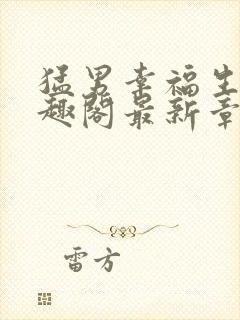 猛男幸福生
趣阁最新章
雷方